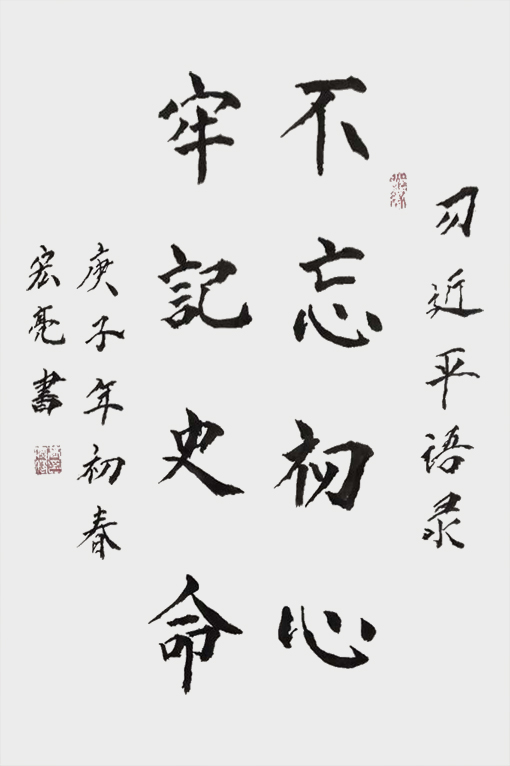 习近平语录
不忘初心
牢記史命
庚子年初春
宏亮書